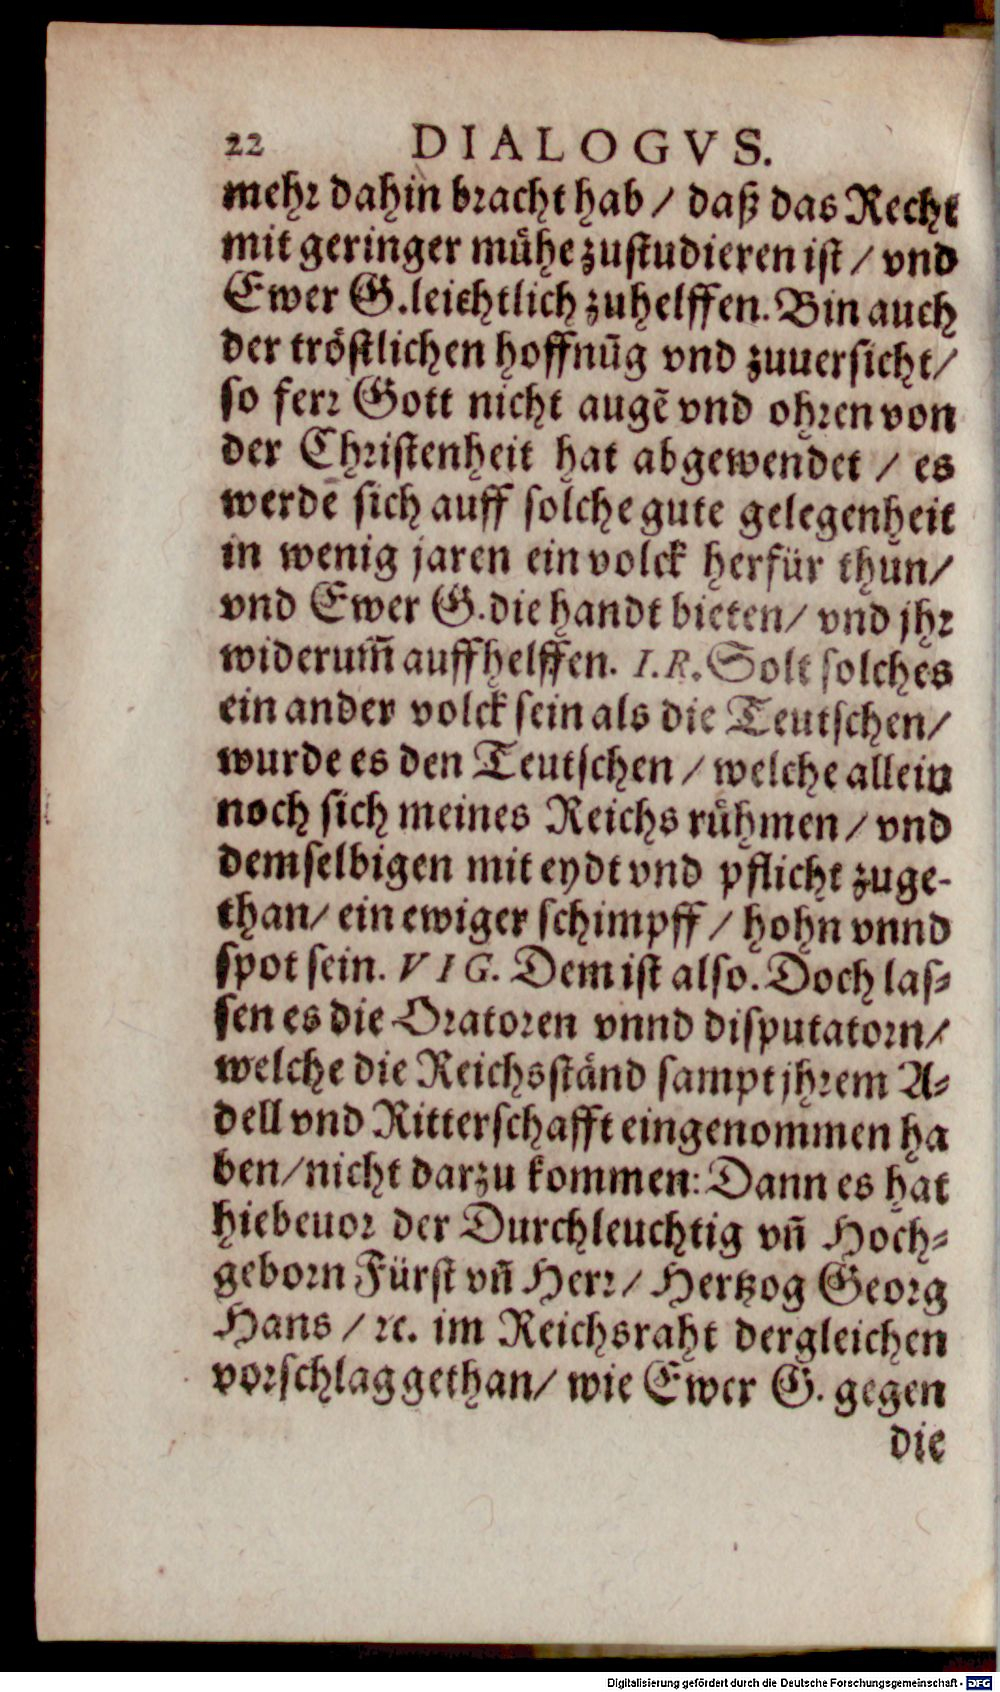 22 DIALOGVS.
mehr dahin bracht hab / daß das Recht
mit geringer mühe zustudieren ist / vnd
Ewer G. leichtlich zuhelffen. Bin auch
der tröstlichen hoffnūg vnd zuuersicht /
so ferr Gott nicht augē vnd ohren von
der Christenheit hat abgewendet / es
werde sich auff solche gute gelegenheit
in wenig jaren ein volck herfür thun /
vnd Ewer G. die handt bieten / vnd jhr
widerum̄ auffhelffen. I. R. Solt solches
ein ander volck sein als die Teutschen /
wurde es den Teutschen / welche allein
noch sich meines Reichs rühmen / vnd
demselbigen mit eydt vnd pflicht zuge-
than / ein ewiger schimpff / hohn vnnd
spot sein. VIG. Dem ist also. Doch las-
sen es die Oratoren vnnd disputatorn /
welche die Reichsständ sampt jhrem A-
dell vnd Ritterschafft eingenommen ha
ben / nicht darzu kommen: Dann es hat
hiebeuor der Durchleuchtig vn̄ Hoch-
geborn Fürst vn̄ Herr / Hertzog Georg
Hans / ꝛc. im Reichsraht dergleichen
vorschlag gethan / wie Ewer G. gegen
die
Digitalisierung gefördert durch die Deutsche Forschungsgemeinschaft - DFG